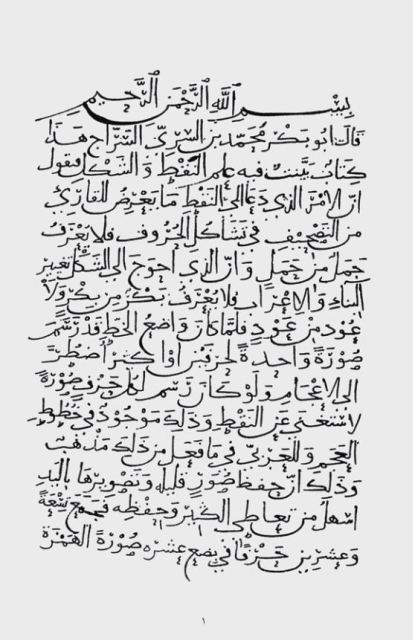 بِسْمِ اللَّهِ الرَّحْمَنِ الرَّحِيمِ
قَالَ أَبُو بَكْرٍ مُحَمَّد بن السَّرِيّ السَّرَّاج هَذَا
كِتَابٌ بَيَّنْتُ فيه عِلم النَّقْطِ وَالشَّكْل فيقول
إنّ الأمْرَ الَّذي دَعَا إلى النَّقْطِ مَا يَعْرِضُ للقارئ
من التَّصْحيف في تَشَاكُل الحُرُوف فلا يَعْرِفُ
حَمَلَ مِنْ جَمَلٍ وَأنّ الَّذي أحْوَجَ إلى الشَّكْل تغيير
البناء وَالإعْرَاب فلا يُعْرَفُ بَكْرٌ مِن بِكْرٍ وَلا
عُودٌ مِنْ عَوْدٍ فلمّا كَانَ وَاضعُ الخَطِّ قَدْ رَسَمَ
صُورَةً وَاحِدةً لحرفين أوْ أكثر اضْطُرَّ
إلى الإعْجَام وَلَوْ كَانَ رَسَم لكُلّ حَرْفٍ صُورَةً
لاسْتَغْنَى عَنِ النَّقْطِ وَذَلكَ مَوْجُودٌ في خُطُوطِ
العَجَم وَللعَرَبيّ في مَا فَعَلَ مِن ذَلكَ مَذْهَبٌ
وَذَلكَ أنّ حِفظ صُوَرٍ قليلة وَتَصْويرهَا باليد
أسْهَلُ من تعاطي الكَثير وَحِفظِه فجمع تِسْعَةً
وَعشْرين حَرْفًا في بضع عشره صُورَة الهَمْزَة
١